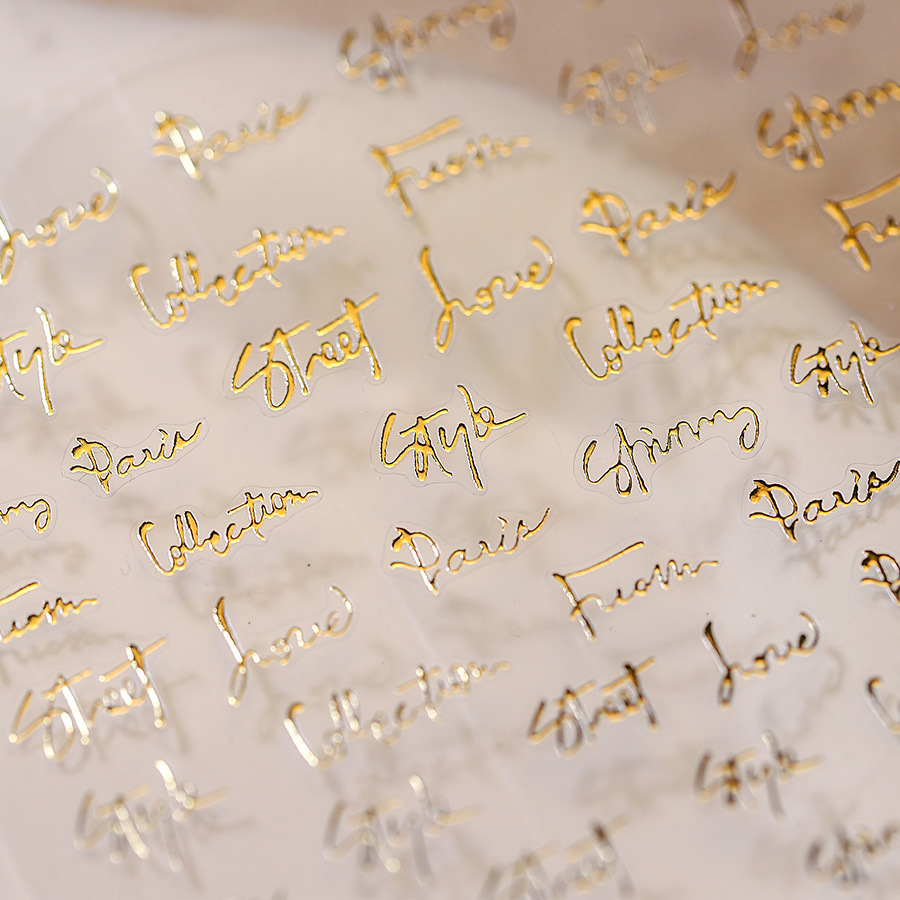 Shinny
Love
Style
Paris
From
Shinny
Love
Collection
Paris
From
Love
Style
Street
Collection
Style
Paris
Style
Shinny
Paris
Collection
Paris
From
From
Love
Love
Street
Collection
Street
Style
Style
Style
Street